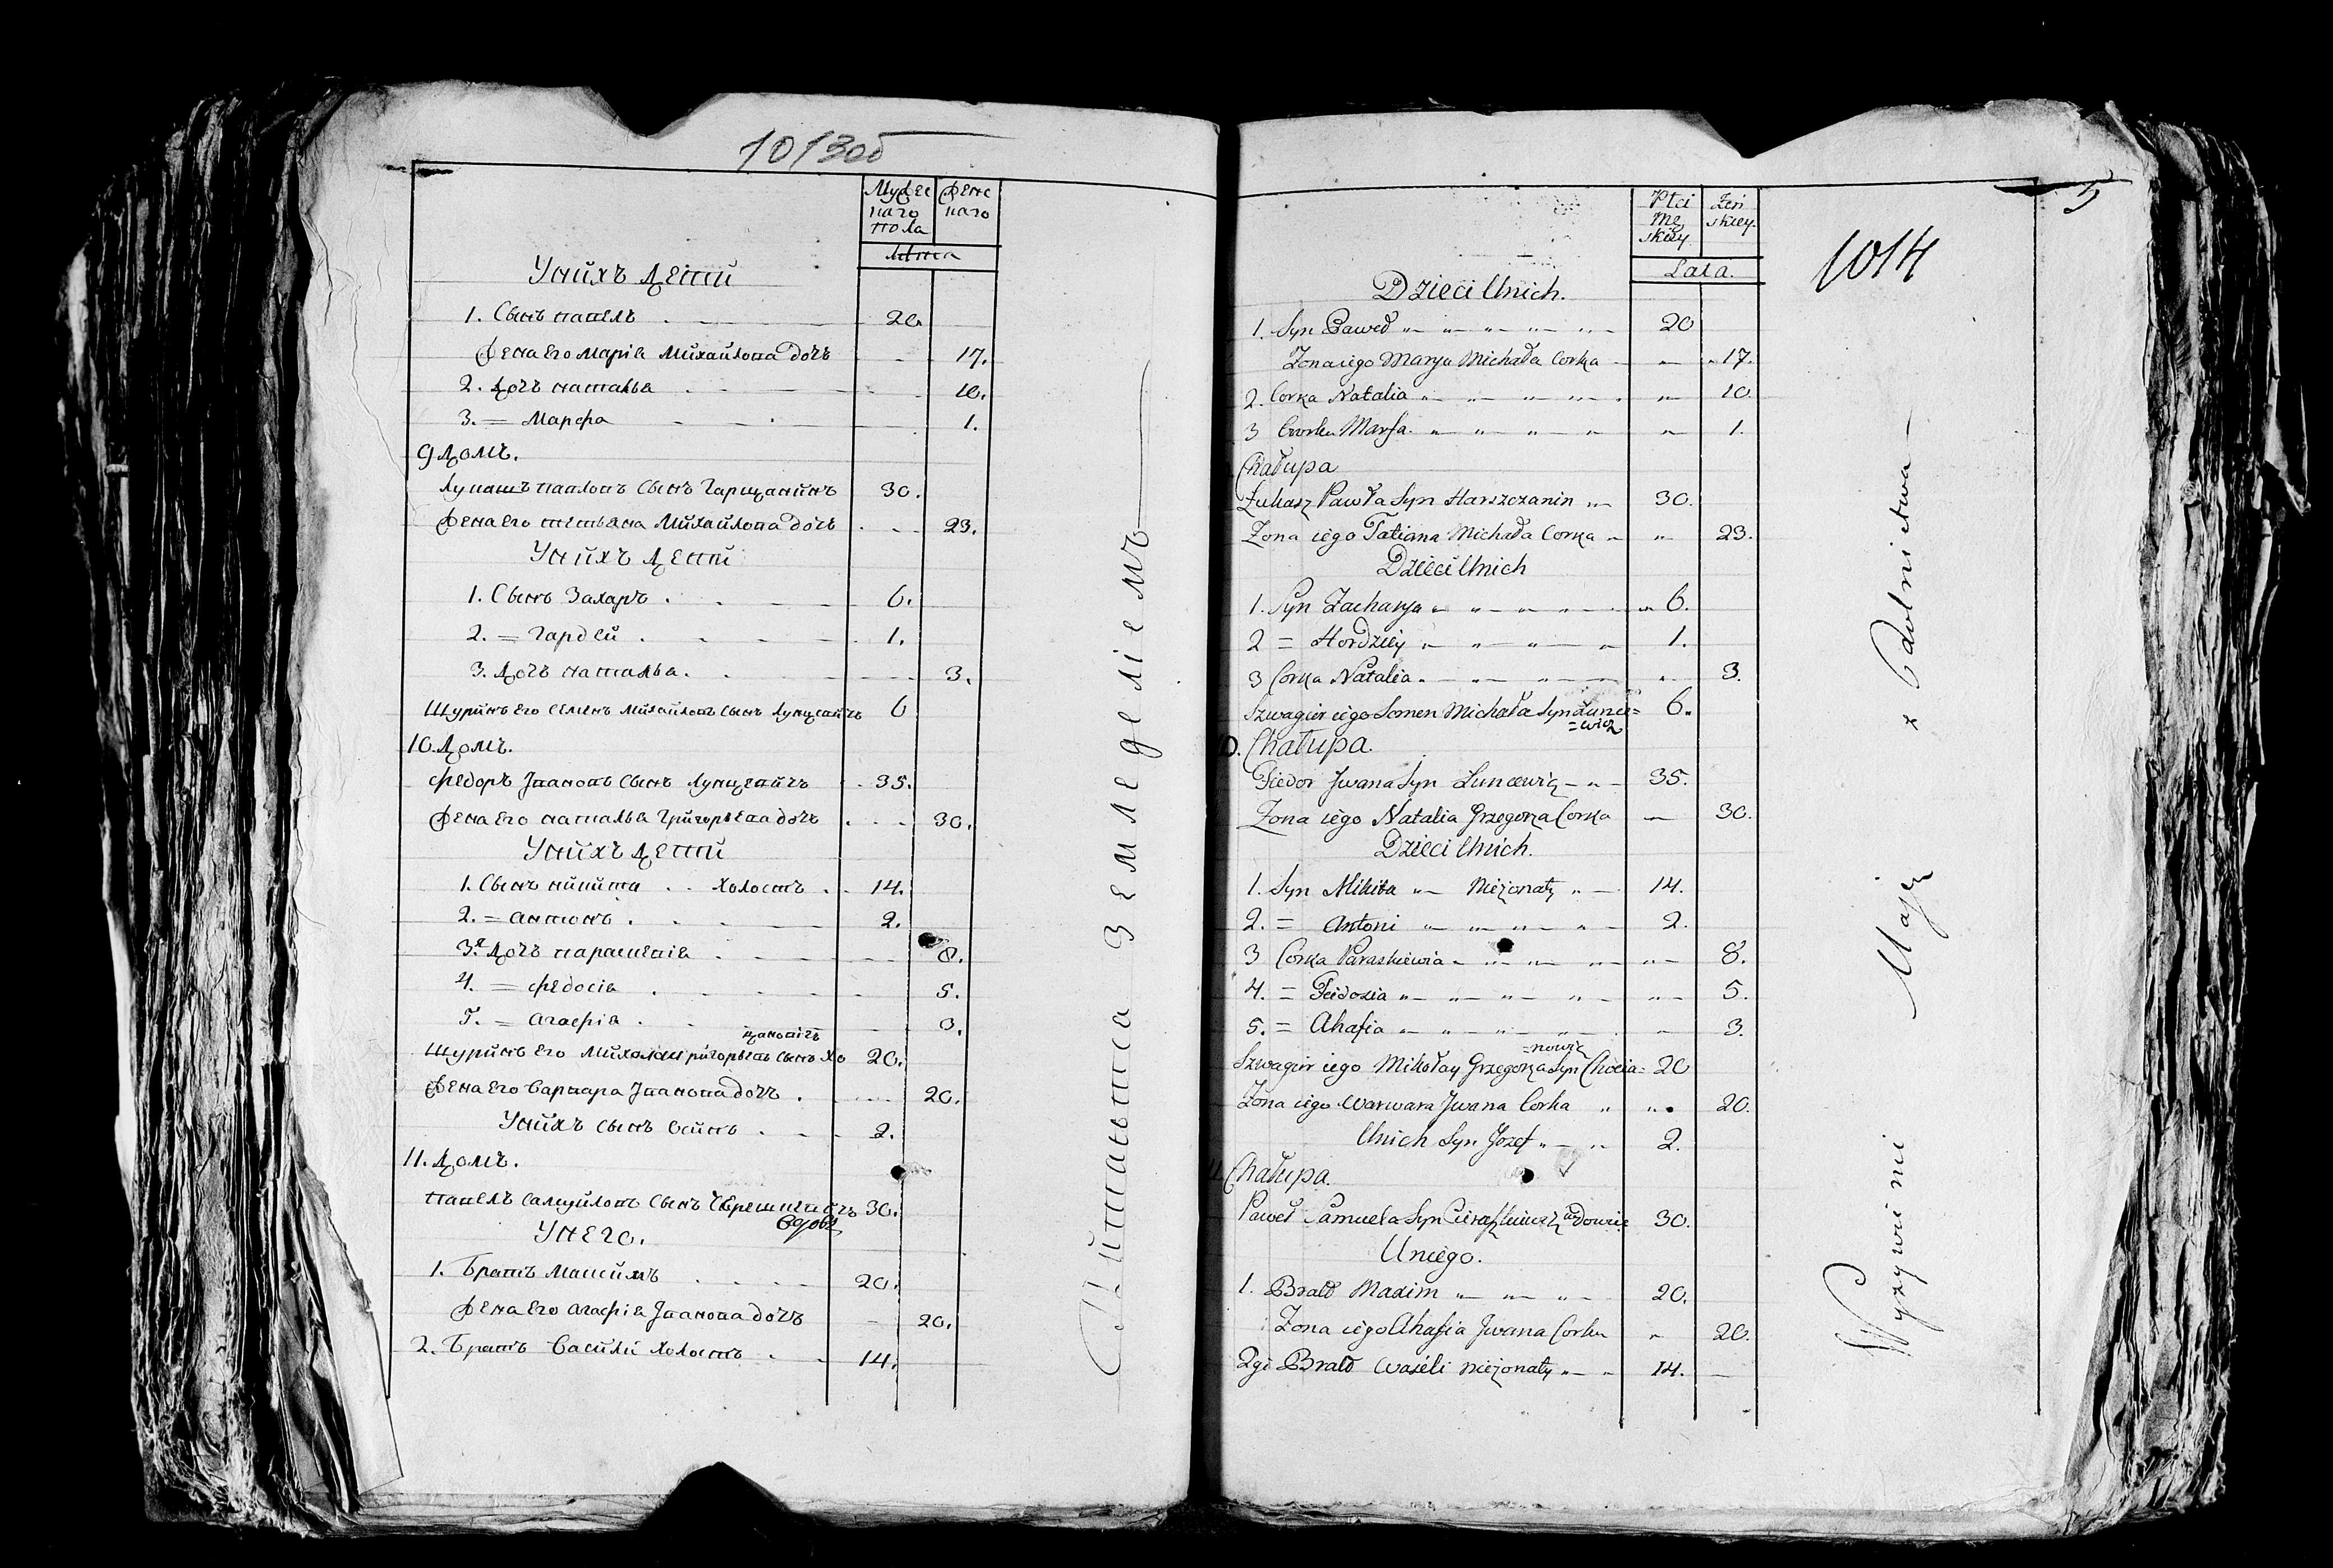 1013об
Мужес Женс
каго каго
пола
Лѣта
Унихъ дети
1. Сынъ павелъ 20.
Жена Его Маріа Михайлова дочъ 17.
2. дочъ наталва 10.
3. = Марфа 1.
9 домъ.
Лукашъ павловъ Сынъ Гарщанинъ 30.
Жена Его тетьяна Михайлова дочъ 23.
Унихъ дети
1. Сынъ Захаръ 6.
2. = Гардей 1.
3. дочъ наталва 3.
Шуринъ Его Семенъ Михайловъ Сынъ Лунцевичъ 6
10. домъ.
Федоръ Iвановъ Сынъ Лунцевичъ 35.
Жена Его наталва Григорьева дочъ 30.
Унихъ дети
1. Сынъ никита холостъ 14.
2. = антонъ 2.
3. дочъ параскевіа 8.
4. = Федосіа 5.
5. = Агафіа 3.
цановичъ
Шуринъ Его Михолай григорьевъ Сынъ Хо 20.
Жена Его Варвара Iванова дочъ 20.
Унихъ Сынъ Осипъ 2.
11. домъ.
павелъ Самуйловъ Сынъ Черешкевичъ 30.
вдовъ
Унего.
1. Братъ Максимъ 20.
Жена Его Агафіа Iванова дочъ 20.
2. Братъ Василй холостъ 14.
Питаются Земледеліемъ
5
1014
Płci Żeń
Mę skiey.
skiey
Lata.
Dzieci Unich.
1. Syn Paweł 20
Zona iego Marya Michała Corka 17.
2. Corka Natalia 10.
3 Corka Marfa 1.
Chałupa
Łukasz Pawła Syn Harszczanin 30.
Zona iego Tatiana Michała Corka 23.
Dzieci Unich
1. Syn Zacharya 6.
2 = Hordziey 1.
3 Corka Natalia 3.
Szwagier iego Semen Michała Syn Łunce= 6.
=wicz
10. Chałupa.
Fiedor Jwana Syn Luncewicz 35.
Zona iego Natalia Grzegorza Corka 30.
Dzieci Unich.
1. Syn Mikita Nieżonaty 14.
2. = Antoni 2.
3 Corka Paraskiewia 8.
4. = Feidosia 5.
5. = Ahafia 3.
=nowicz
Szwagier iego Mikołay Grzegorza Syn Chocia= 20
Zona iego Warwara Jwana Corka 20.
Unich Syn Jozef 2.
11. Chałupa.
Paweł Samuela Syn Cieraszkiewicz wdowiec 30.
Uniego.
1. Bratt Maxim 20.
Zona iego Ahafia Jwana Corka 20.
2gi Bratt Wasili nieżonaty 14.
Wyzywienie Mają z Rolnictwa